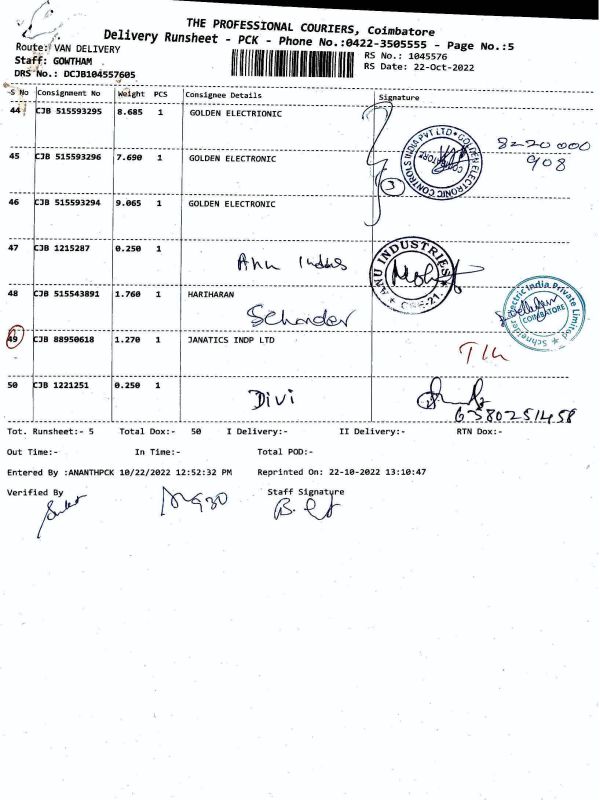 THE PROFESSIONAL COURIERS, Coimbatore
Delivery Runsheet - PCK - Phone No.:0422-3505555 - Page No.:5
Route: VAN DELIVERY
RS No.: 1045576
Staff: GOWTHAM
RS Date: 22-Oct-2022
DRS No.: DCJB104557605
S No Consignment No Weight PCS Consignee Details Signature
44 CJB 515593295 8.685 1 GOLDEN ELECTRIONIC
GOLDEN ELECTRONIC CONTROLS INDIA PVT LTD
COIMBATORE
8220000
908
45 CJB 515593296 7.690 1 GOLDEN ELECTRONIC
3
46 CJB 515593294 9.065 1 GOLDEN ELECTRONIC
47 CJB 1215287 0.250 1 Anu Indus
ANU INDUSTRIES
CBE-21.
48 CJB 515543891 1.760 1 HARIHARAN
Schnder
Schneider Electric India Private Limited
COIMBATORE
49 CJB 88950618 1.270 1 JANATICS INDP LTD
50 CJB 1221251 0.250 1 Divi
6380251458
Tot. Runsheet:- 5 Total Dox:- 50 I Delivery:- II Delivery:- RTN Dox:-
Out Time:- In Time:- Total POD:-
Entered By :ANANTHPCK 10/22/2022 12:52:32 PM Reprinted On: 22-10-2022 13:10:47
Verified By Staff Signature